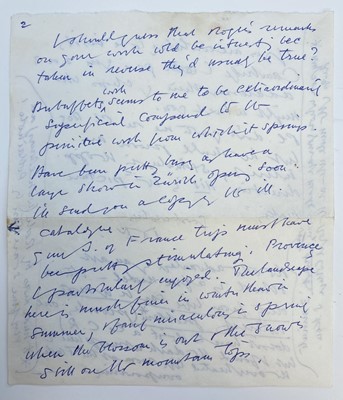 2
I should guess that stage's remarks
on your work wld be interestg bec
taken in reverse they'd usually be true?
Dubuffet's work seems to me to be extraordinarily
superficial compared to the
primitive work from which it springs.
Have been pretty busy as have a
large show in Zürich opening soon.
Ill send you a copy of the Ill.
catalogue
Your S. of France trip must have
been pretty stimulating. Provence
I particularly enjoyed. The landscape
here is much finer in winter than in
summer, & faint miraculous in spring
when the blossom is out & the snow is
still on the mountain tops.